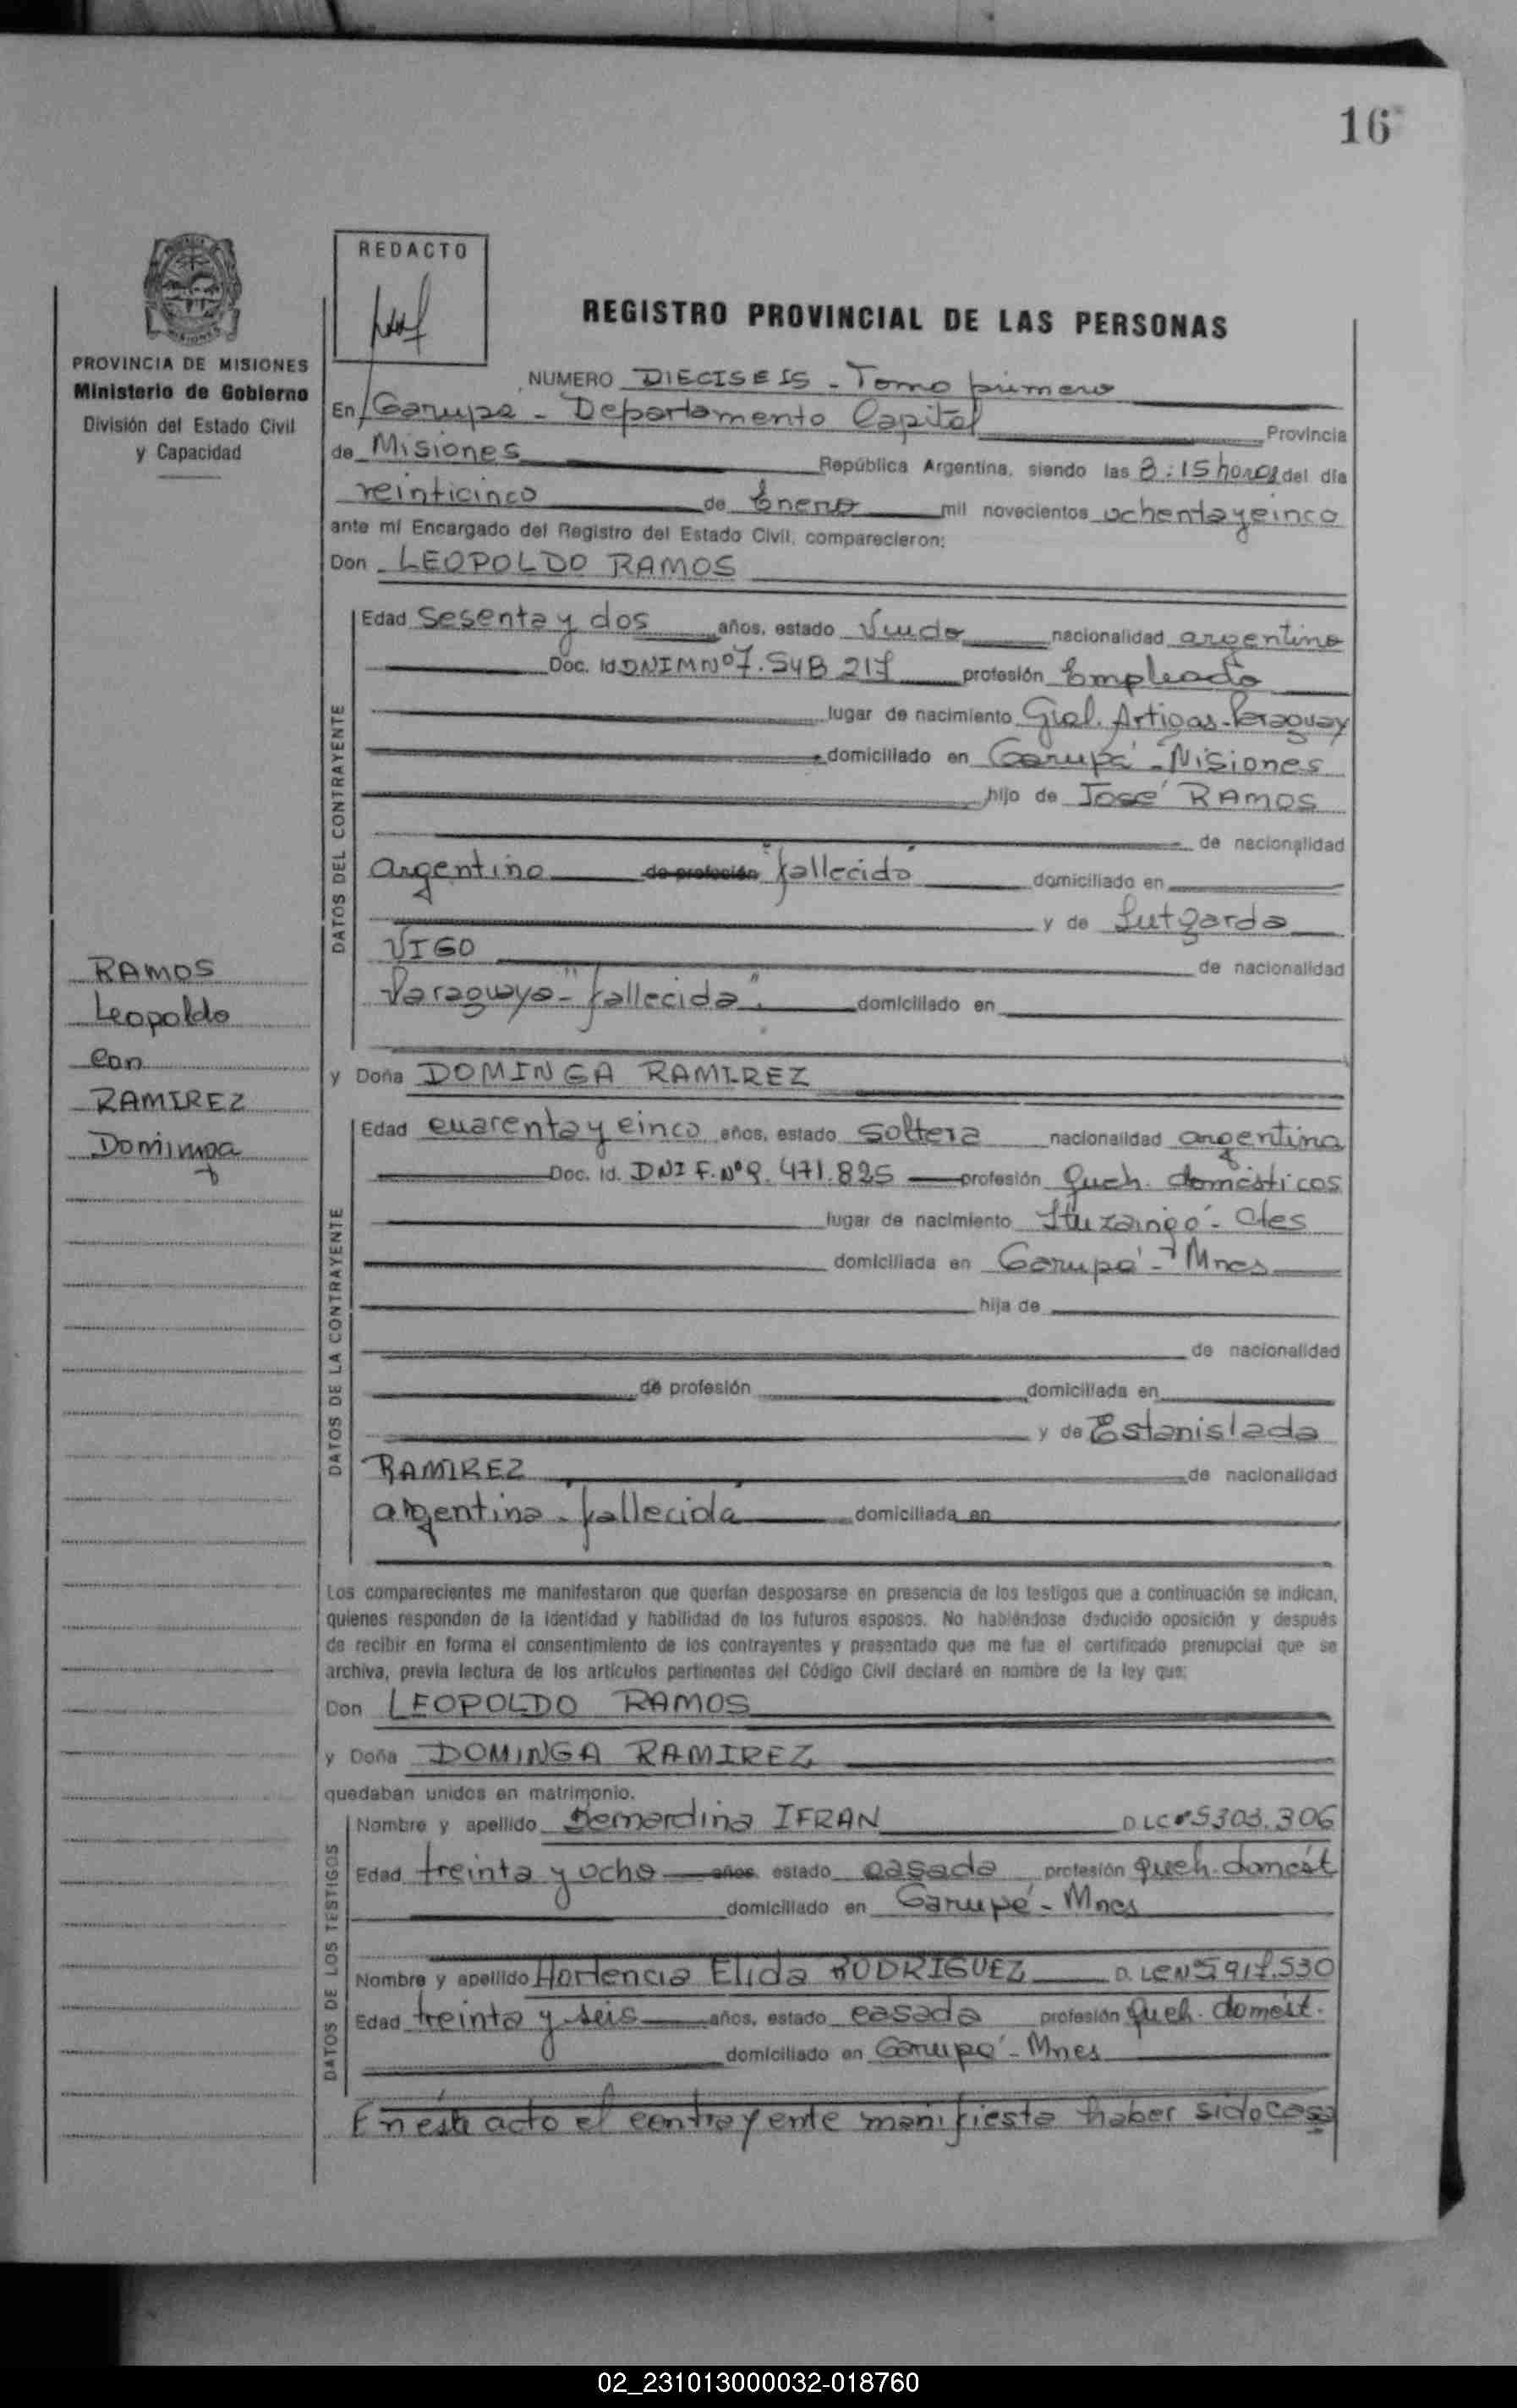 16
REDACTO
REGISTRO PROVINCIAL DE LAS PERSONAS
PROVINCIA DE MISIONES
Ministerio de Gobierno
División del Estado Civil
y Capacidad
NUMERO DIECISEIS - Tomo primero
En Garupá - Departamento Capital Provincia
de Misiones República Argentina, siendo las 8:15 horas del día
veinticinco de Enero mil novecientos ochenta y cinco
ante mí Encargado del Registro del Estado Civil, comparecieron:
Don LEOPOLDO RAMOS
DATOS DEL CONTRAYENTE
Edad Sesenta y dos años, estado Viudo nacionalidad argentino
Doc. Id. DNI M Nº 7.548.217 profesión Empleado
lugar de nacimiento Gral. Artigas - Paraguay
domiciliado en Garupá - Misiones
hijo de José RAMOS
de nacionalidad
argentino de profesión "fallecido" domiciliado en
y de Lutgarda
VIGO de nacionalidad
Paraguaya - "fallecida". domiciliado en
RAMOS
Leopoldo
con
RAMIREZ
Dominga
y Doña DOMINGA RAMIREZ
DATOS DE LA CONTRAYENTE
Edad cuarenta y cinco años, estado soltera nacionalidad argentina
Doc. Id. DNI F. Nº 9.471.825 profesión Queh. domésticos
lugar de nacimiento Ituzaingó - Ctes
domiciliada en Garupá - Mnes
hija de
de nacionalidad
de profesión domiciliada en
y de Estanislada
RAMIREZ de nacionalidad
argentina - fallecida domiciliada en
Los comparecientes me manifestaron que querían desposarse en presencia de los testigos que a continuación se indican,
quienes responden de la identidad y habilidad de los futuros esposos. No habiéndose deducido oposición y después
de recibir en forma el consentimiento de los contrayentes y presentado que me fue el certificado prenupcial que se
archiva, previa lectura de los artículos pertinentes del Código Civil declaré en nombre de la ley que:
Don LEOPOLDO RAMOS
y Doña DOMINGA RAMIREZ
quedaban unidos en matrimonio.
DATOS DE LOS TESTIGOS
Nombre y apellido Bernardina IFRAN D LC 5303.306
Edad treinta y ocho años, estado casada profesión queh. domést
domiciliado en Garupá - Mnes
Nombre y apellido Hortencia Elida RODRIGUEZ D. LC Nº 5.917.530
Edad treinta y seis años, estado casada profesión Queh. domést.
domiciliado en Garupá - Mnes
En éste acto el contrayente manifiesta haber sido casa
02_231013000032-018760